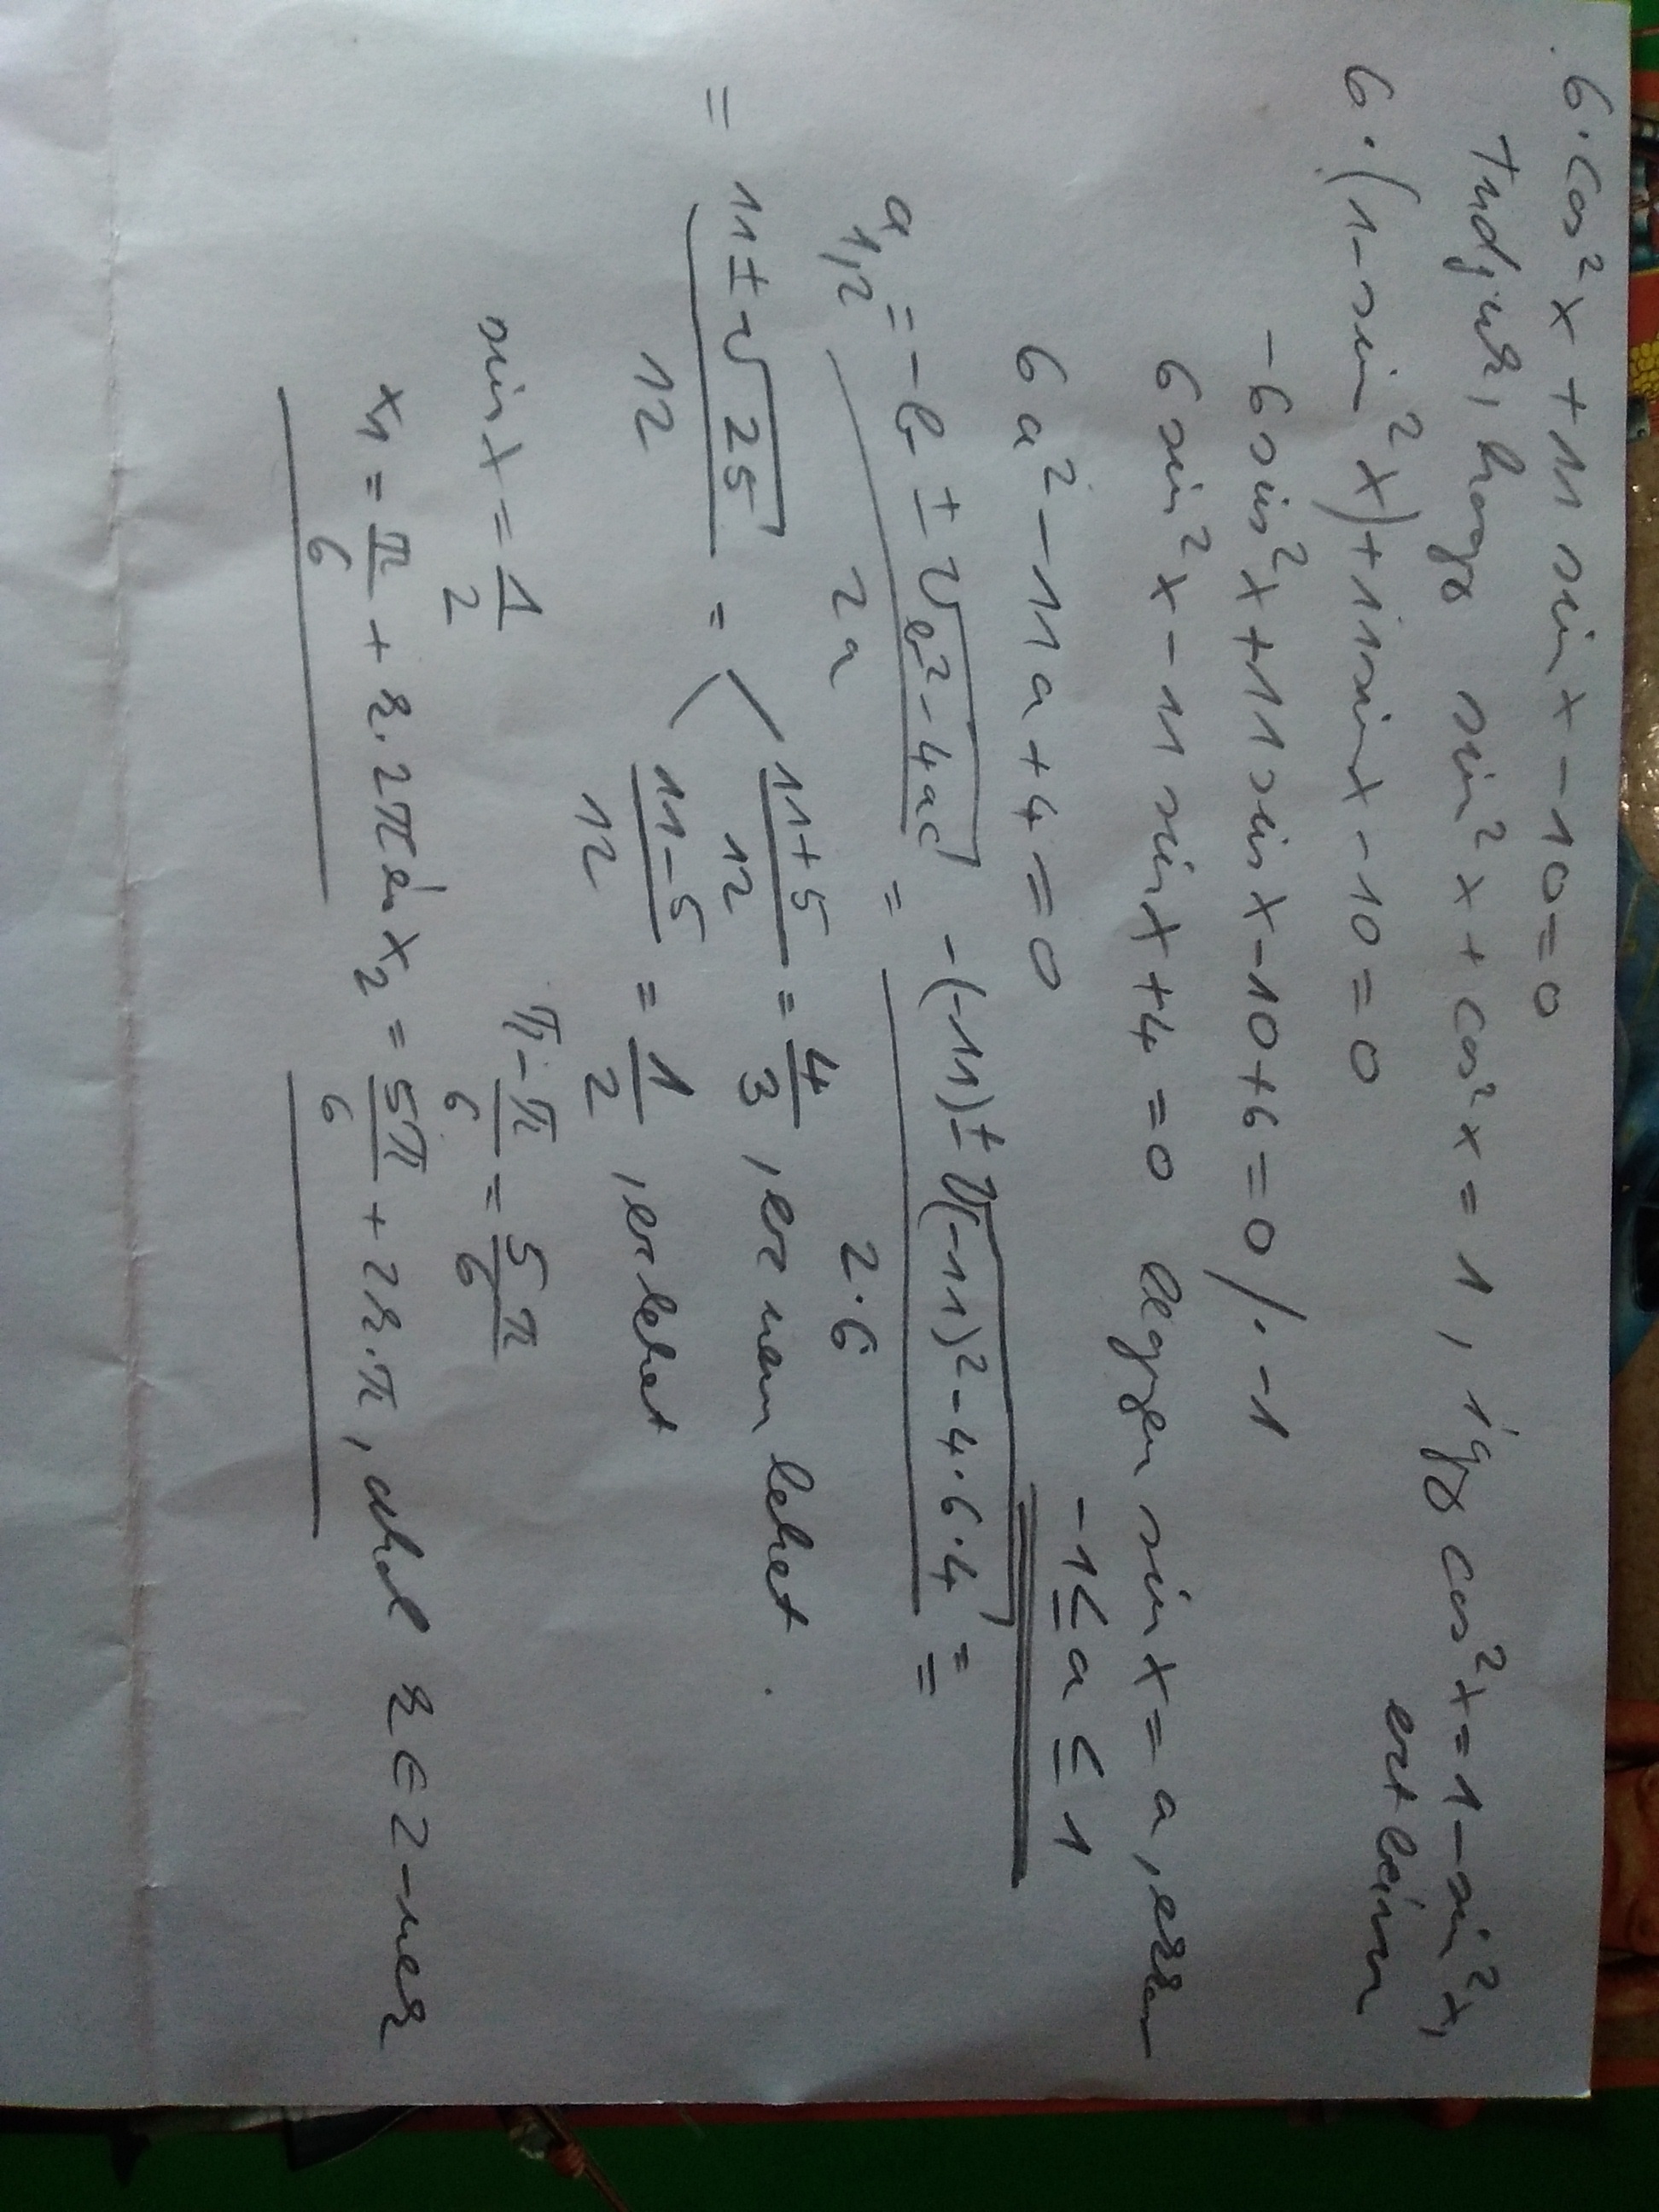 6·cos²x+11 sin x-10=0
Tudjuk, hogy sin²x+cos²x=1, így cos²x=1-sin²x,
ezt beírva
6·(1-sin²x)+11sinx-10=0
-6sin²x+11sinx-10+6=0 /·-1
6sin²x-11sinx+4=0 legyen sinx=a, ekkor
-1≤a≤1
6a²-11a+4=0
a1,2 = -b±√b²-4ac / 2a = -(-11)±√(-11)²-4·6·4 / 2·6 =
= 11±√25 / 12 = < 11+5 / 12 = 4/3, ez nem lehet.
11-5 / 12 = 1/2, ez lehet
sinx = 1/2 π-π/6 = 5π/6
x1=π/6+k·2π és x2=5π/6+2k·π, ahol k∈Z-nek